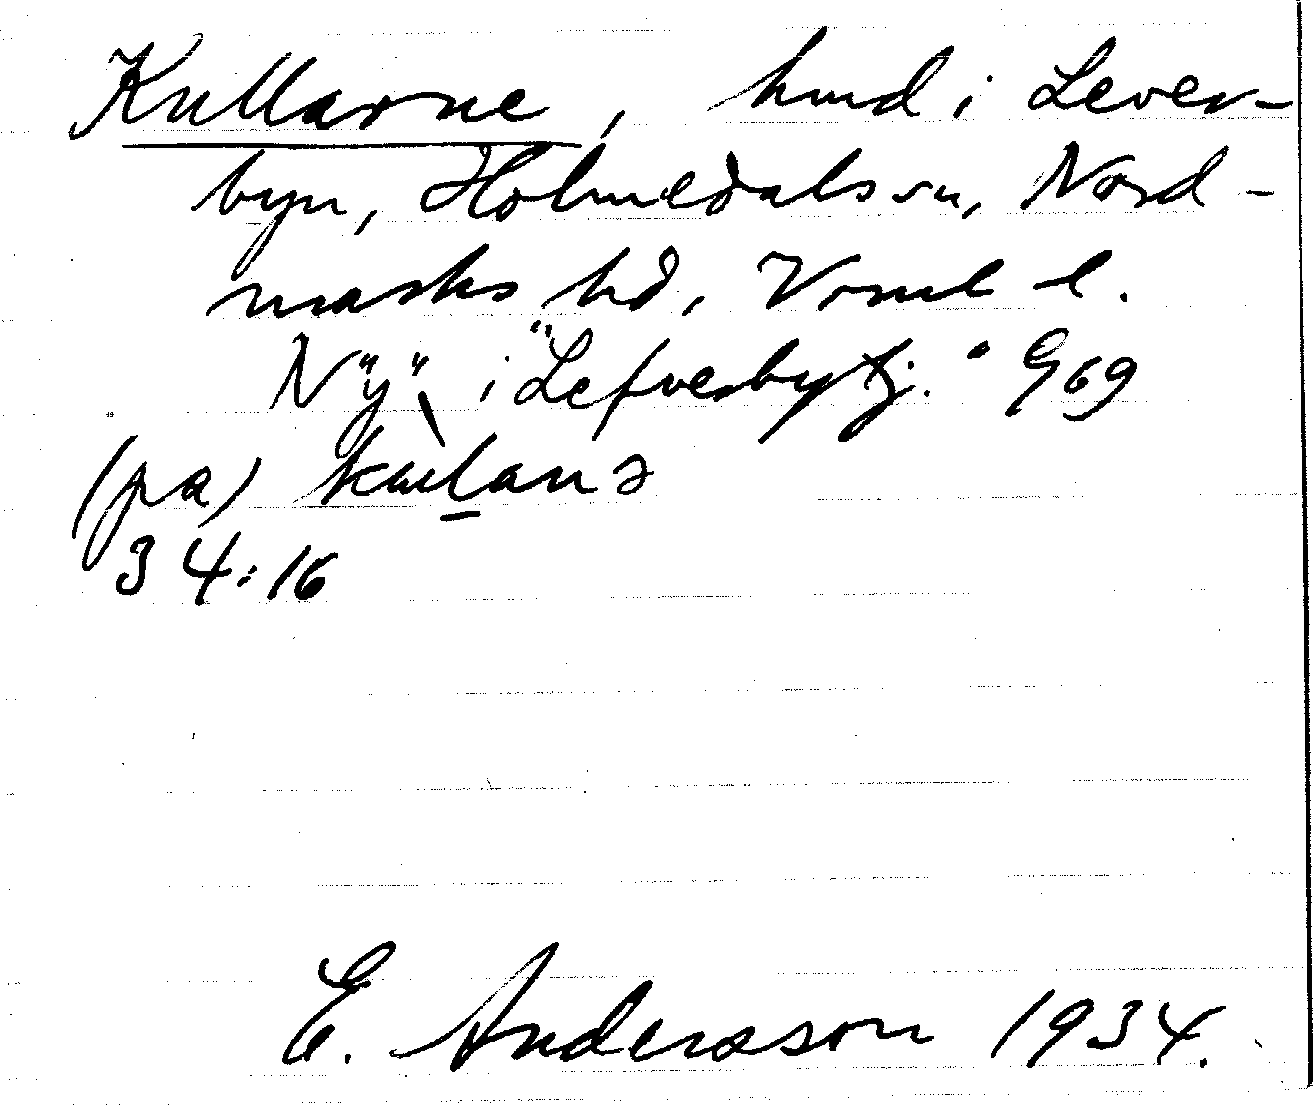 Kullarne, hmd i Lever-
byn, Holmedals sn, Nord-
marks hd, Verml l.
N "y" i "Lefverbytj." G 69
(pa)
34:16
E. Andersson 1934.